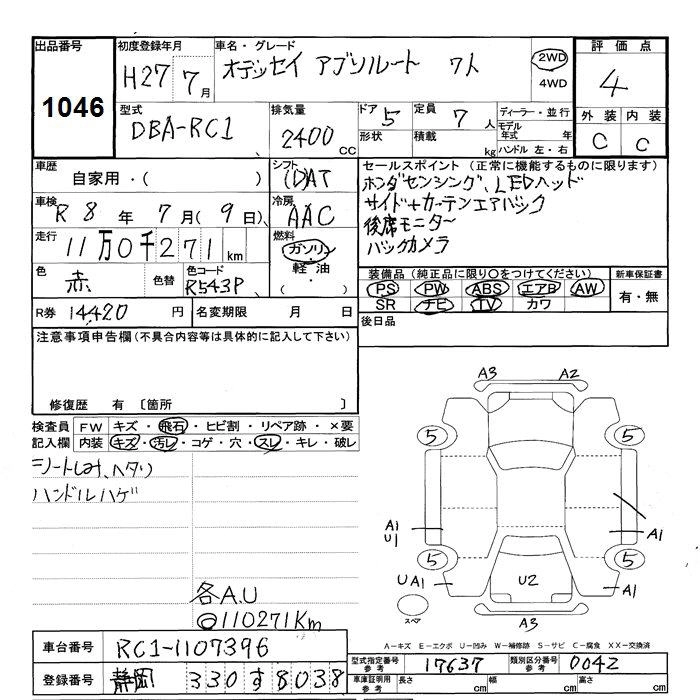 出品番号
1046
初度登録年月
H27 7月
車名・グレード
オデッセイ アブソルート 7人
2WD
4WD
評価点
4
外装 内装
C C
型式
DBA-RC1
排気量
2400 cc
ドア 5
形状
定員 7 人
積載 kg
ディーラー・並行
モデル年式 年
ハンドル 左・右
車歴
自家用・( )
シフト
(D)AT
車検 R8 年 7 月( 9 日)
冷房
AAC
走行 11万0千271 km
燃料
ガソリン
軽油
( )
色 赤 色替
色コード
R543P
セールスポイント (正常に機能するものに限ります)
ホンダセンシング、LEDヘッド
サイド+カーテンエアバック
後席モニター
バックカメラ
装備品 (純正品に限り○をつけてください)
PS PW ABS エアB AW
SR ナビ TV カワ
新車保証書
有・無
R券 14420 円
名変期限 月 日
後日品
注意事項申告欄 (不具合内容等は具体的に記入して下さい)
修復歴 有 〔箇所 〕
検査員記入欄
FW キズ・飛石・ヒビ割・リペア跡・×要
内装 キズ・汚レ・コゲ・穴・スレ・キレ・破レ
シートしみ、ヘタリ
ハンドルハゲ
各A.U
◎110271Km
A3 A2
5 5
A1
U1
A1
5 5
UA1 U2 A1
スペア
A3
A-キズ E-エクボ U-凹み W-補修跡 S-サビ C-腐食 XX-交換済
車台番号 RC1-1107396
登録番号 静岡 330す8038
型式指定番号 参考 17637
類別区分番号 参考 0042
車庫証明用 参考 長さ cm 幅 cm 高さ cm